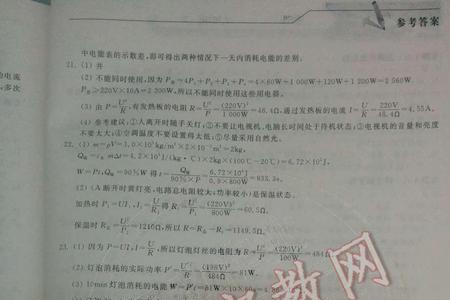 参考答案
中电能表的示数差,即可得出两种情况下一天内消耗电能的差别.
21. (1)并
(2)不能同时使用,因为P总=4P₁+P₂+P₃+P₄=4×60W+1 000W+120W+1 200W=2 560W.
P总≥220V×10A=2 200W,所以不能同时使用这些用电器.
(3)由P=U²/R,有发热板的电阻R=U²/P=(220V)²/1 000W=48.4Ω,通过发热板的电流I=U/R=220V/48.4Ω=4.55A.
(4)参考建议:①人离开时随手关灯;②不要让电视机、电脑长时间处于待机状态;③电视机的音量和亮度
不要太大;④空调温度不要设置得太低;⑤尽量采用自然光.
22. (1)m=ρV=1.0×10³kg/m³×2×10⁻³m³=2kg,
Q吸=c水mΔt=4.2×10³J/(kg·℃)×2kg×(100℃-20℃)=6.72×10⁵J,
W=Pt,Q吸=90%W 得t=
(2)(A断开时黄灯亮,电路总电阻较大,功率较小)是保温状态.
加热时P₁=UI₁,I₁=U/R₁得R₁=U²/P₁=(220V)²/800W=60.5Ω,
保温时R总=U²/P₂=1210Ω,所以R=R总-R₁=1149.5Ω.
23. (1)因为P=UI,I=U/R,所以灯泡灯丝的电阻为R=U²/P=(220V)²/100W=484Ω
(2)灯泡消耗的实际功率P′=(198V)²/484Ω=81W.
(3)10min灯泡消耗的电能W=P′t=81W×10×60s=4.86
电流
多次